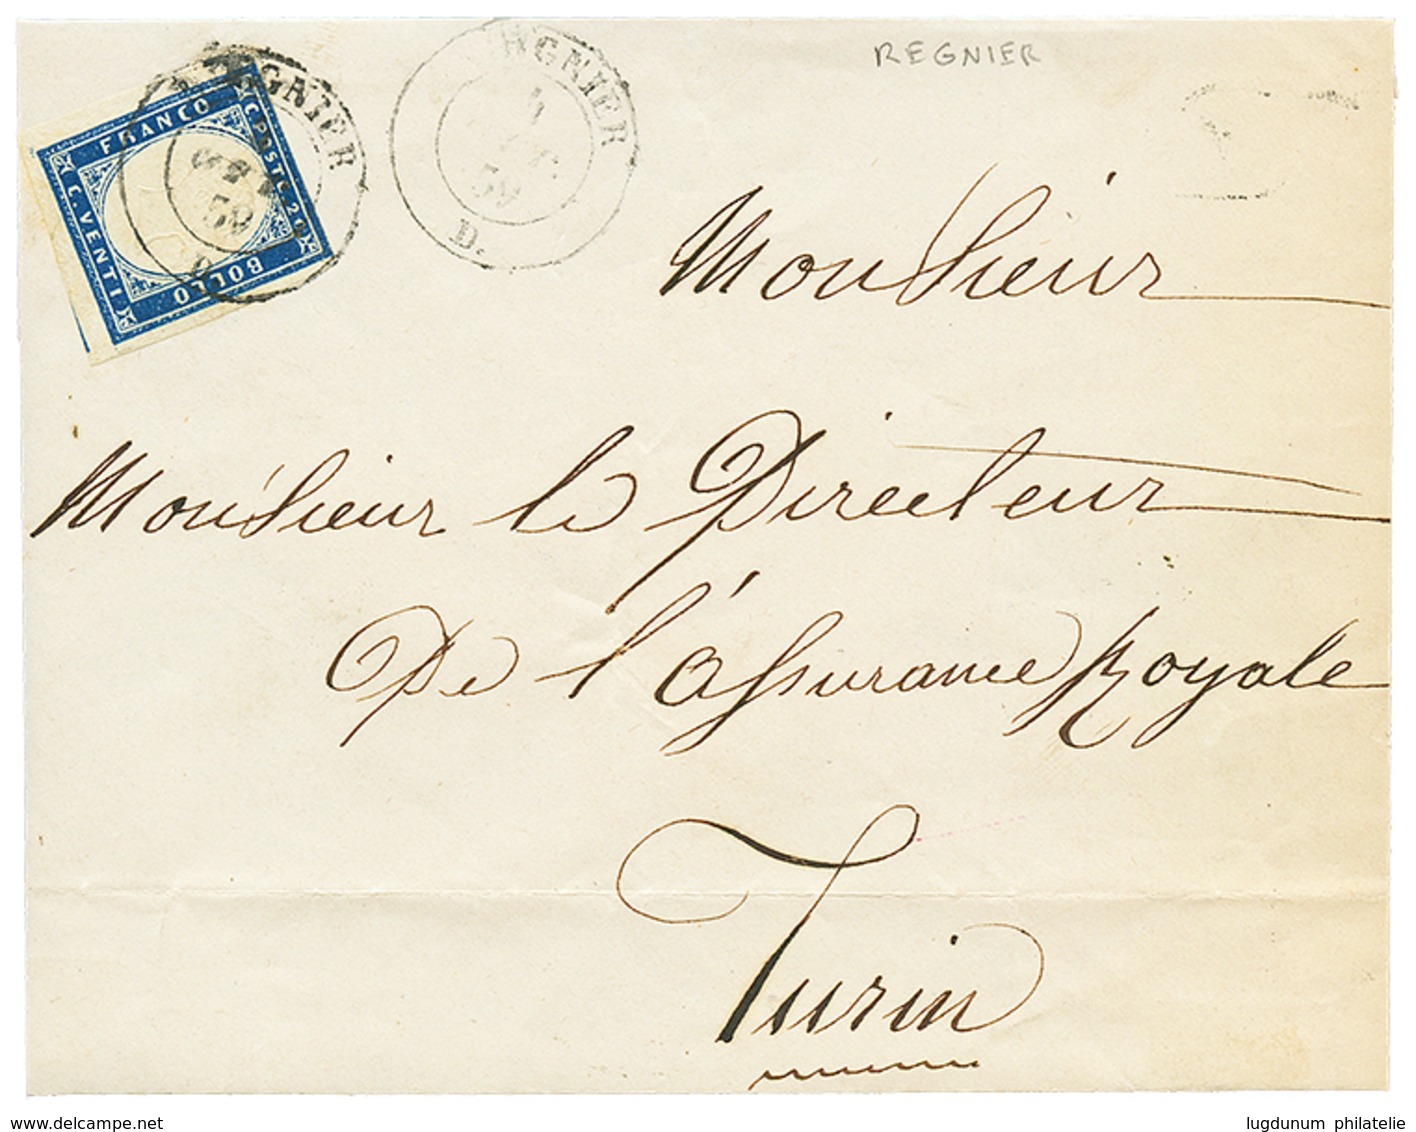 REGNIER
FRANCO
C. POSTE. 20
BOLLO
C. VENTI
REGNIER
REGNIER
4
59
D.
Monsieur
Monsieur le Directeur
De l'assurance Royale
Turin
delcampe.net
lugdunum philatelie